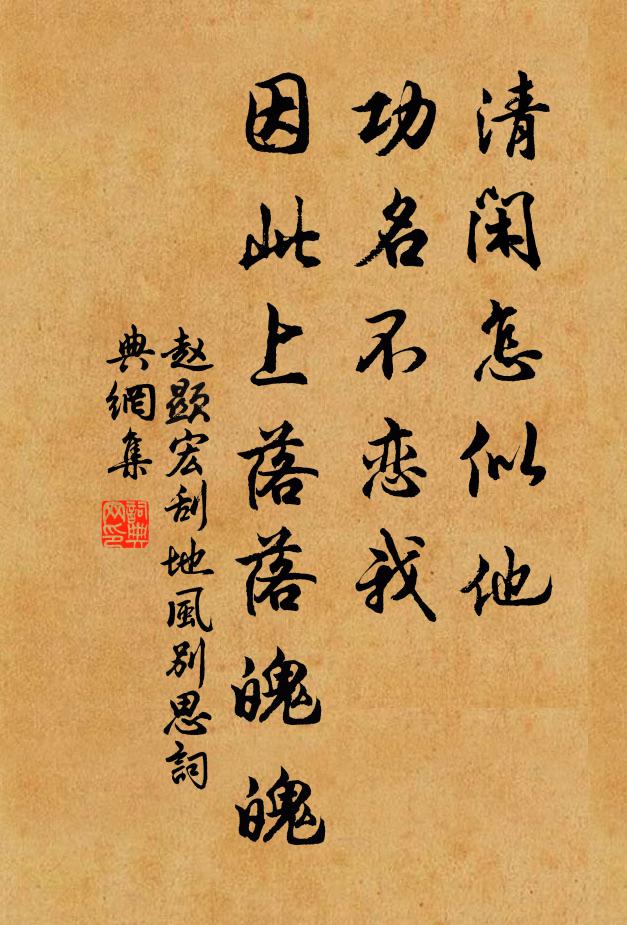 清闲怎似他
功名不恋我
因此上落落魄魄
赵顯宏刮地風别思詞
典網集
詞典网印